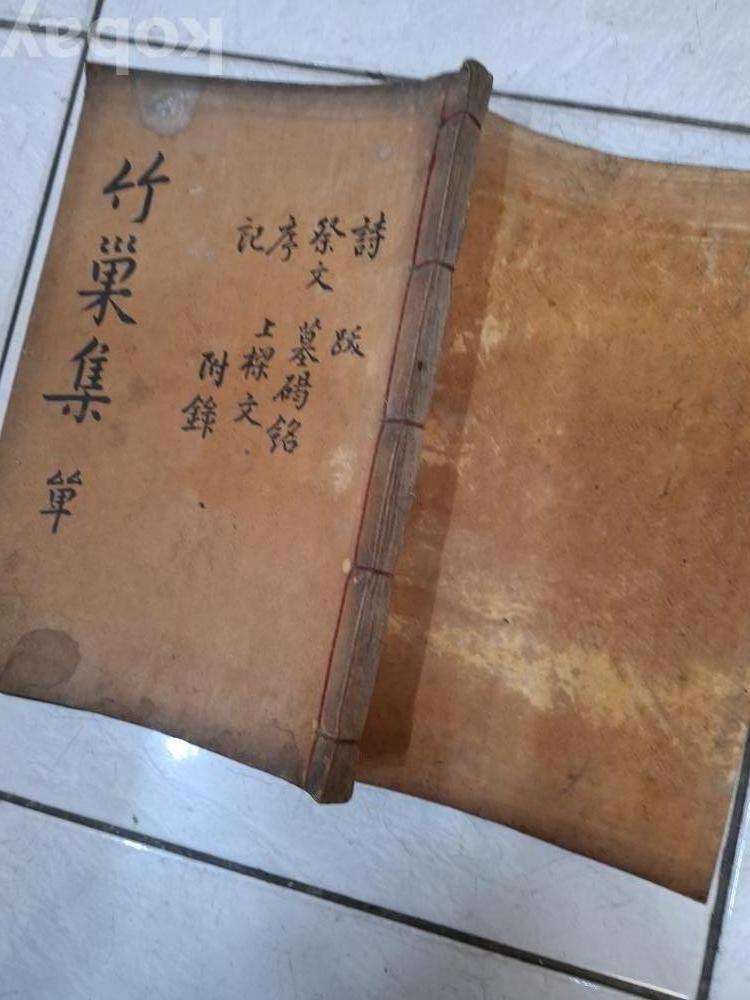 詩 跋
祭文 墓碣銘
序 上樑文
記 附錄
竹巢集 單
kobay